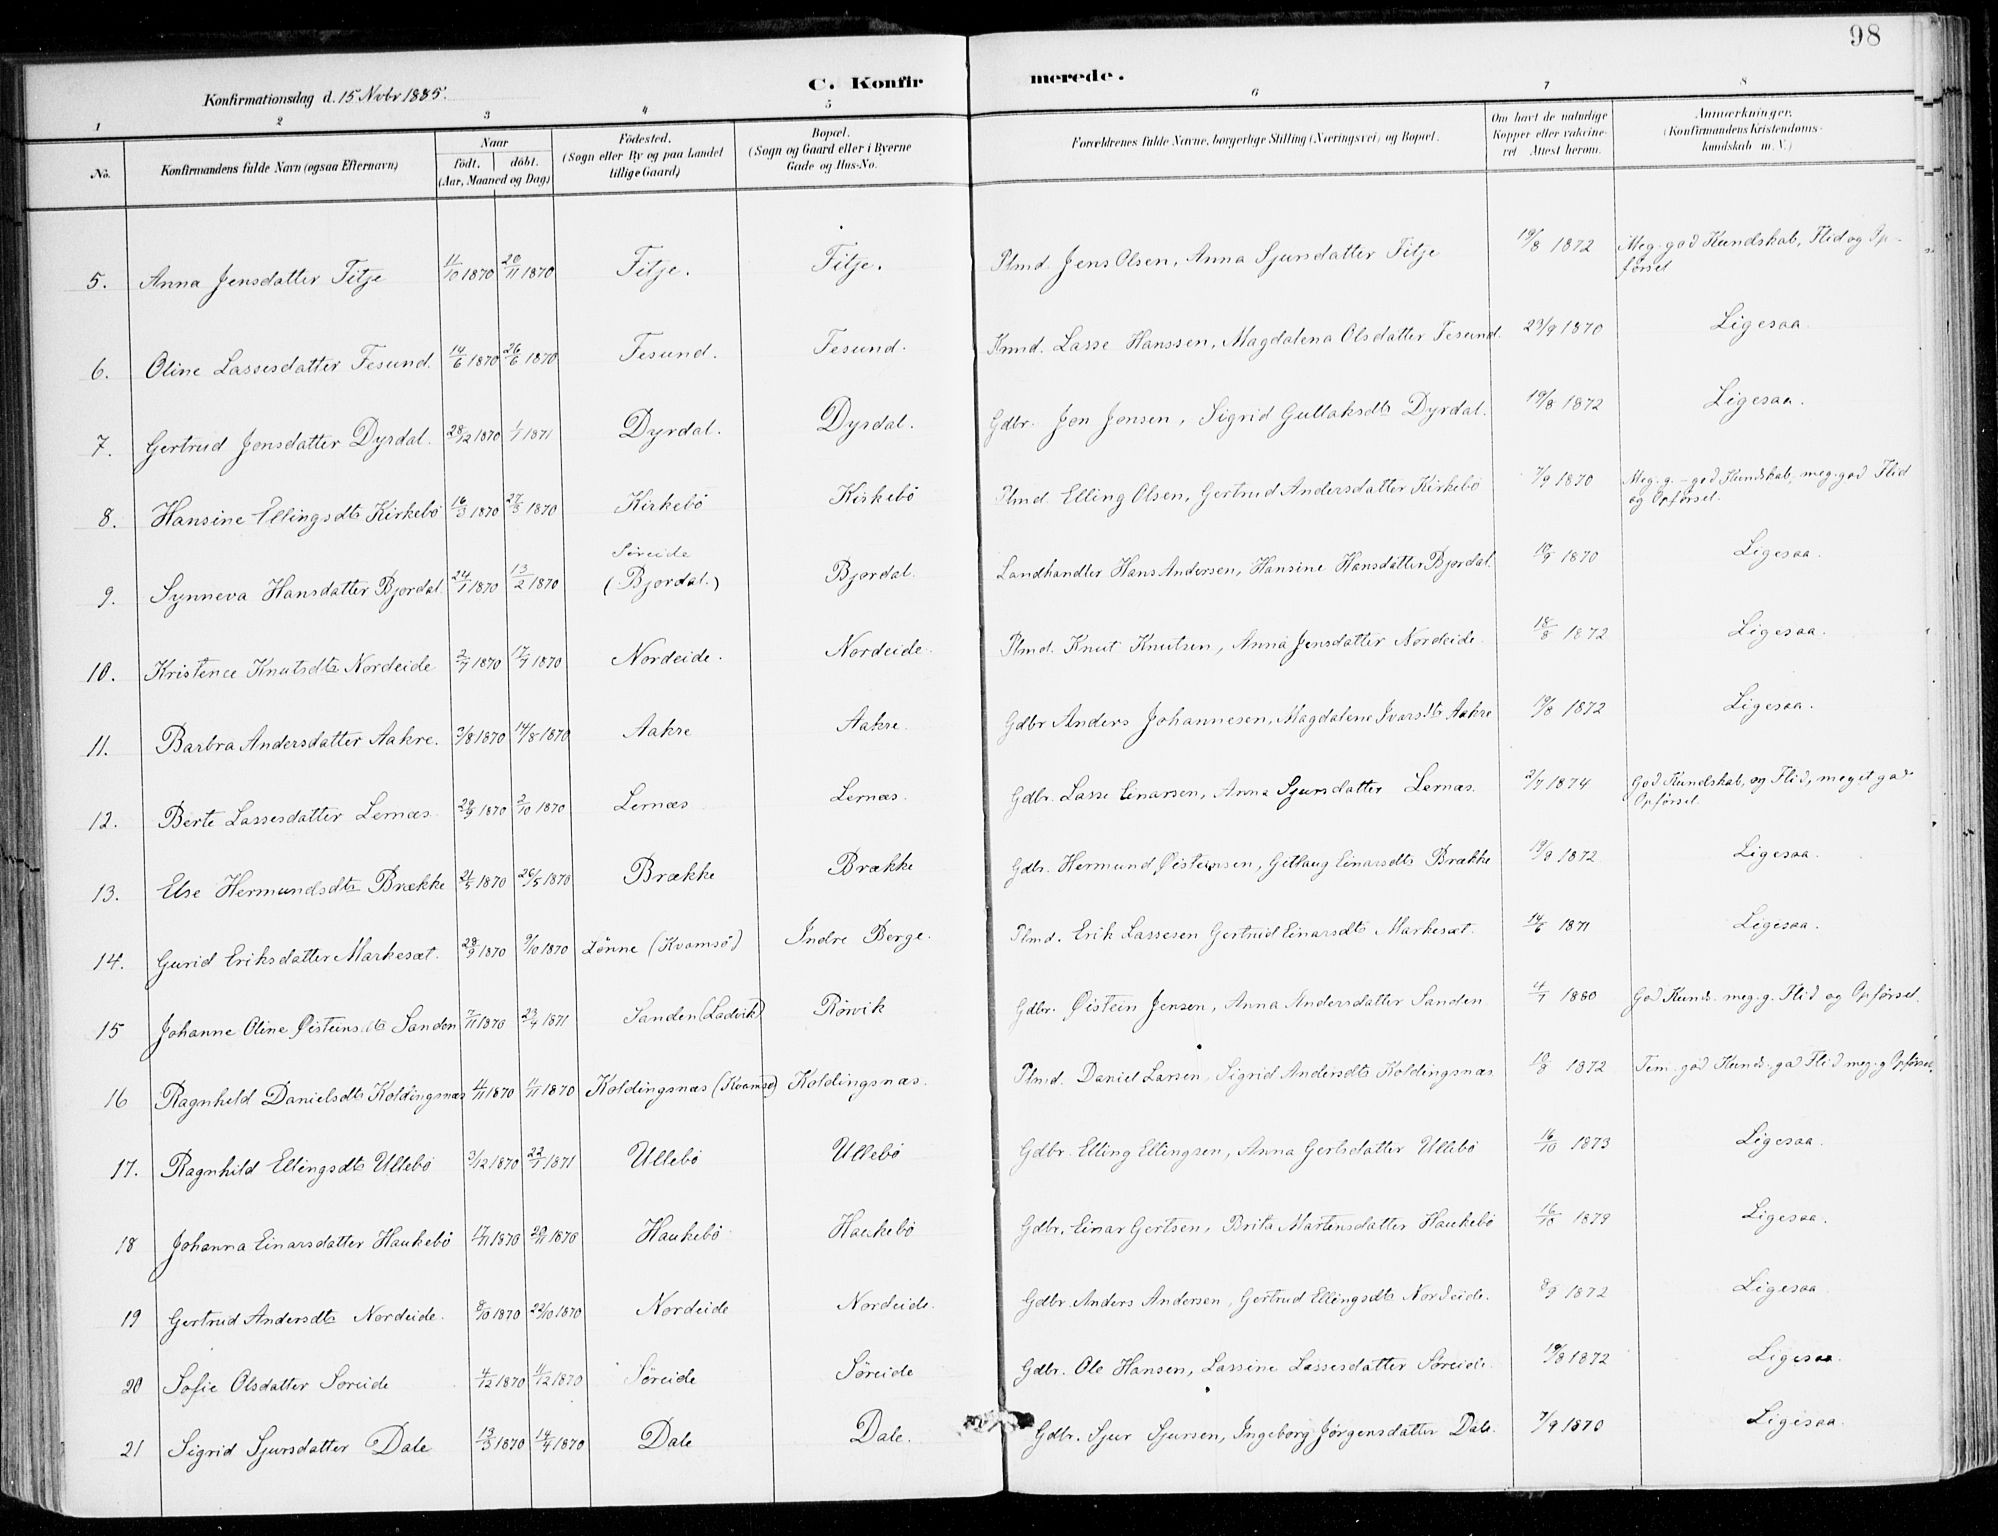 98
C. Konfirmerede.
Konfirmationsdag d. 15 Nvbr 1885.
1 2 3 4 5 6 7 8
No. Konfirmandens fulde Navn (ogsaa Efternavn) Naar födt. döbt. (Aar, Maaned og Dag) Födested. (Sogn eller By og paa Landet tillige Gaard) Bopæl. (Sogn og Gaard eller i Byerne Gade og Hus-No. Forældrenes fulde Navne, borgerlige Stilling (Næringsvei) og Bopæl. Om havt de naturlige Kopper eller vakcineret Attest herom. Anmærkninger. (Konfirmandens Kristendomskundskab m. V.)
5. Anna Jensdatter Fitje 11/10 1870 20/11 1870 Fitje. Fitje. Plmd. Jens Olsen, Anna Sjursdatter Fitje 19/8 1872 Meg. god Kundskab, Flid og Opførsel
6. Oline Lassesdatter Tesund. 14/6 1870 26/6 1870 Tesund. Tesund. Knmd. Lasse Hanssen, Magdalena Olsdatter Tesund. 23/9 1870 Ligesaa.
7. Gertrud Jonsdatter Dyrdal. 28/12 1870 1/1 1871 Dyrdal. Dyrdal. Gdbr. Jon Jonsen, Sigrid Gullaksdtr Dyrdal. 19/8 1872 Ligesaa.
8. Hansine Ellingsdtr Kirkebö 16/3 1870 27/3 1870 Kirkebö Kirkebö Plmd. Elling Olsen, Gertrud Andersdatter Kirkebö 7/9 1870 Meg. g. - god Kundskab, meg. god Flid og Opførsel.
9. Synneva Hansdatter Bjordal. 24/1 1870 13/2 1870 Söreide (Bjordal.) Bjordal. Landhandler Hans Andersen, Hansine Hansdatter Bjordal. 10/9 1870 Ligesaa.
10. Kristence Knutsdtr Nordeide 2/7 1870 17/7 1870 Nordeide. Nordeide. Plmd. Knut Knutsen, Anna Jensdatter Nordeide. 18/8 1872 Ligesaa.
11. Barbra Andersdatter Aakre. 3/8 1870 14/8 1870 Aakre Aakre. Gdbr Anders Johannesen, Magdalene Ivarsdtr Aakre 19/8 1872 Ligesaa.
12. Berte Lassesdatter Lernæs. 29/9 1870 2/10 1870 Lernæs Lernæs. Gdbr. Lasse Einarsen, Anna Sjursdatter Lernæs. 2/7 1874 God Kundskab, og Flid, meget god Opførsel.
13. Else Hermundsdtr Brække 21/5 1870 26/5 1870 Brække Brække Gdbr. Hermund Øisteinsen, Gitlaug Einarsdtr Brække 19/8 1872 Ligesaa.
14. Gurid Eriksdatter Markesæt. 28/9 1870 9/10 1870 Lönne (Kvamsö) Indre Berge. Plmd. Erik Lassesen Gertrud Einarsdtr Markesæt. 14/6 1871 Ligesaa.
15 Johanne Oline Øisteinsdtr Sanden 7/11 1870 23/4 1871 Sanden (Ladvik) Rörvik Gdbr. Øistein Jensen, Anna Andersdatter Sanden 4/1 1880 God Kunds. meg. g. Flid og Opførsel.
16 Ragnhild Danielsdtr Koldingsnæs 4/11 1870 11/11 1870 Koldingsnæs (Kvamsö) Koldingsnæs. Plmd. Daniel Larsen, Sigrid Andersdtr Koldingsnæs 19/8 1872 Tem. god Kunds. god Flid meg. g Opførsel.
17. Ragnhild Ellingsdtr Ullebö 3/12 1870 22/1 1871 Ullebö Ullebö Gdbr. Elling Ellingsen, Anna Gertsdatter Ullebö 16/10 1873 Ligesaa.
18 Johanna Einarsdatter Haukebö 17/11 1870 20/11 1870 Haukebö Haukebö Gdbr. Einar Gertsen, Brita Martensdatter Haukebö 16/10 1879 Ligesaa.
19 Gertrud Andersdtr Nordeide. 8/10 1870 22/10 1870 Nordeide Nordeide. Gdbr. Anders Andersen, Gertrud Ellingsdtr Nordeide. 8/9 1872 Ligesaa
20 Sofie Olsdatter Söreide 4/12 1870 11/12 1870 Söreide Söreide Gdbr. Ole Hansen, Lassine Lassesdatter Söreide. 19/8 1872 Ligesaa.
21 Sigrid Sjursdatter Dale 13/3 1870 14/4 1870 Dale Dale. Gdbr. Sjur Sjursen, Ingeborg Jørgensdatter Dale. 7/9 1870 Ligesaa.